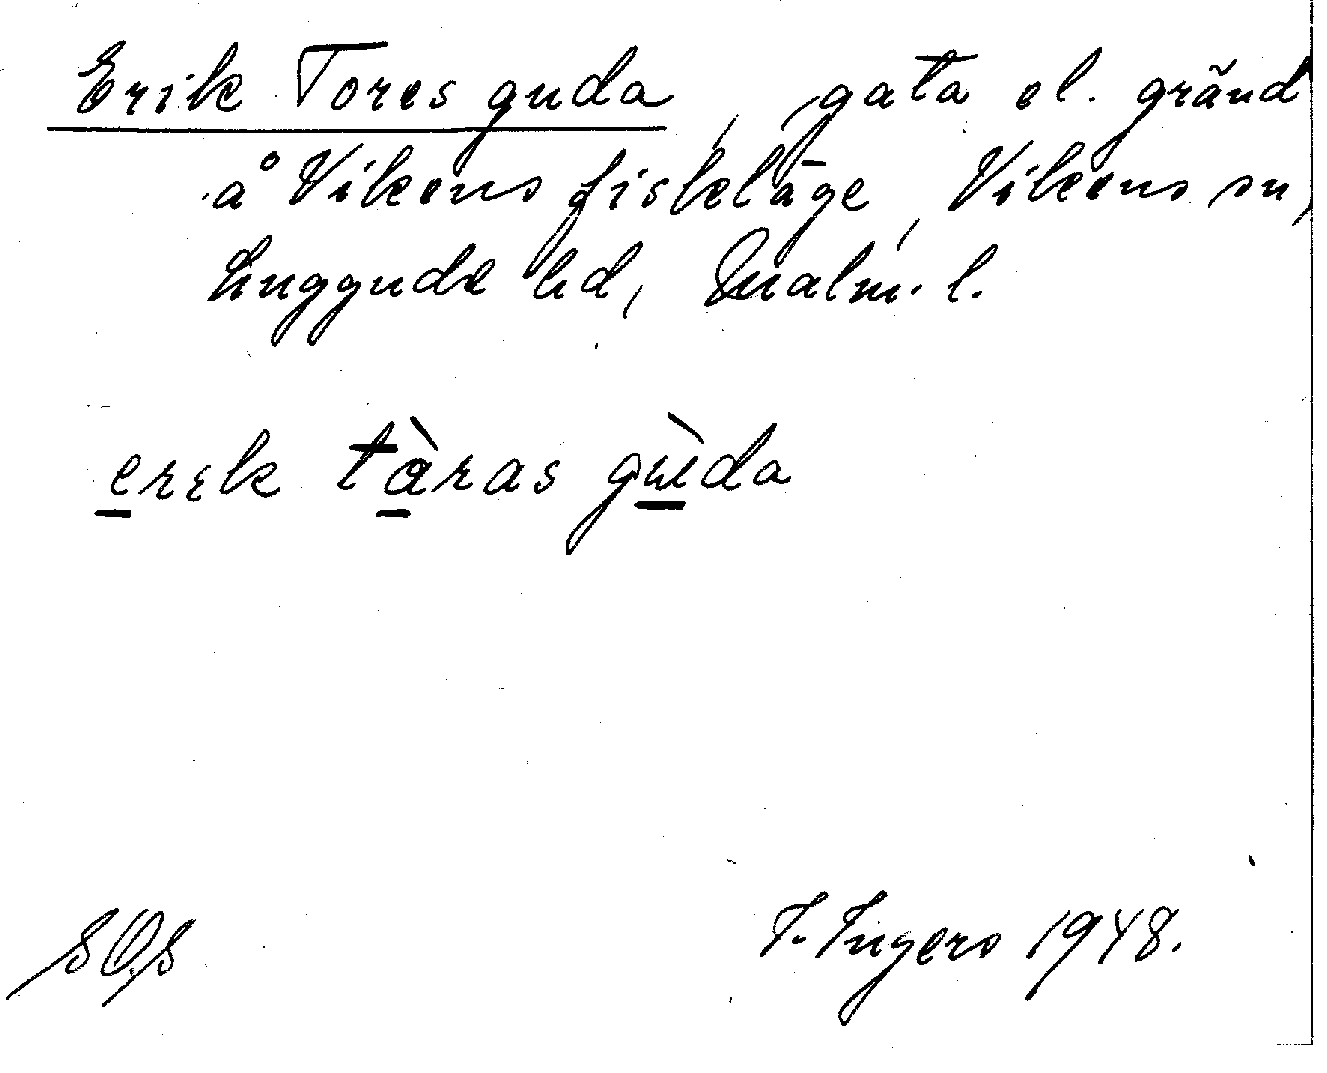 Erik Tores guda, gata el. gränd
å Vikens fiskläge, Vikens sn,
Luggude hd, Malm. l.
erik tàras gùda
SOS
F. Ingers 1948.